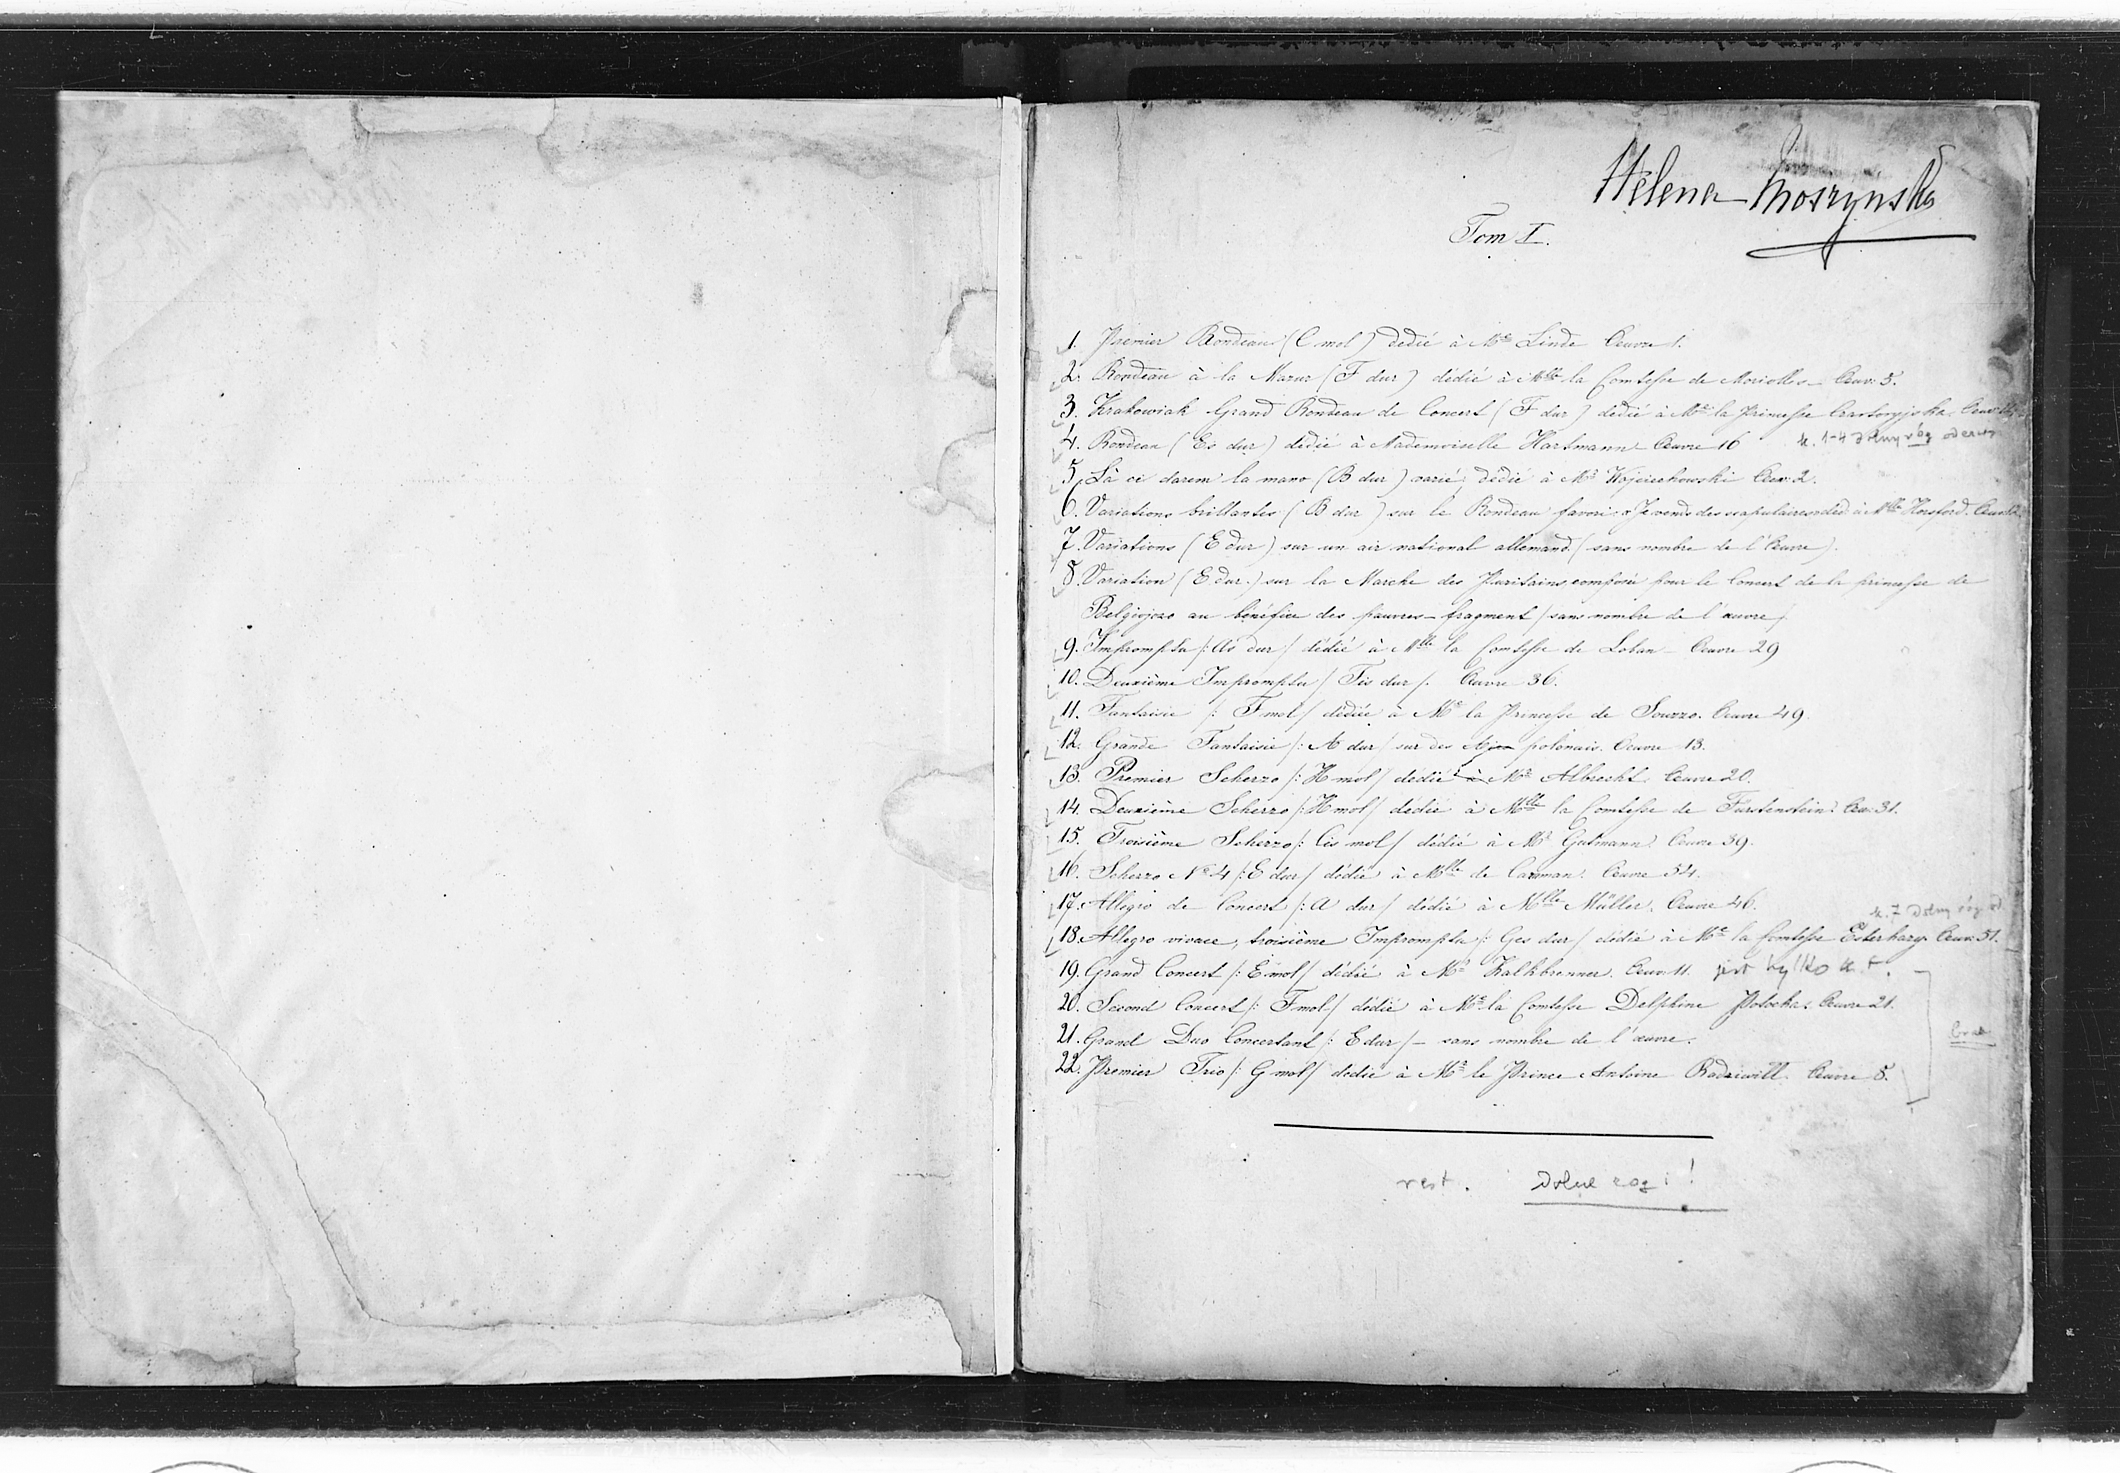 Helena
Tom I.
1. Premier Rondeau (C mol) dédié à Mme Linde Oeuvre 1.
2. Rondeau à la Mazur (F dur) dédié à Mlle la Comtesse de Moriolles – Oeuv. 5.
3. Krakowiak Grand Rondeau de Concert (F dur) dédié à Me la Princesse Czartoryjska. Oeuv.
4. Rondeau (Es dur) dédié à Mademoiselle Hartmann Oeuvre 16 k. 1-4 dolny róg
5. Là ci darem la mano (B dur) varié, dédié à Mr Wojciechowski Oeuv. 2.
6. Variations brillantes (B dur) sur le Rondeau favori „Je vends des scapulaires“ déd. à Mlle Horsford. Oeuv. 12.
7. Variations (E dur) sur un air national allemand (sans nombre de l'Oeuvre).
8. Variation (E dur.) sur la Marche des Puritains composée pour le Concert de la princesse de
Belgiojozo au bénéfice des pauvres – fragment / sans nombre de l'oeuvre /.
9. Impromptu /: As dur / dédié à Mlle la Comtesse de Loban – Oeuvre 29
10. Deuxième Impromptu / Fis dur /. Oeuvre 36.
11. Fantaisie /: F mol / dédiée à Me la Princesse de Souzzo. Oeuvre 49.
12. Grande Fantaisie /: A dur / sur des polonais. Oeuvre 13.
13. Premier Scherzo /: H mol / dédié à Mr Albrecht. Oeuvre 20.
14. Deuxième Scherzo /: H mol / dédié à Mlle la Comtesse de Fürstenstein. Oeu. 31.
15. Troisième Scherzo /: Cis mol / dédié à Mr Gutmann. Oeuvre 39.
16. Scherzo No 4 /: E dur / dédié à Mlle de Caraman. Oeuvre 54.
17. Allegro de Concert /: A dur / dédié à Mlle Müller. Oeuvre 46.
k. 7 dolny róg
18. Allegro vivace, troisième Impromptu /: Ges dur / dédié à Me la Comtesse Esterhazy. Oeuv. 51.
19. Grand Concert /: E mol / dédié à Mr Kalkbrenner. Oeuv. 11. jest tylko k. t.
20. Second Concert /: F mol / dédié à Me la Comtesse Delphine Potocka. Oeuvre 21.
21. Grand Duo Concertant /: E dur / – sans nombre de l'oeuvre.
brak
22. Premier Trio /: G mol / dédié à Mr le Prince Antoine Radziwill. Oeuvre 8.
rest. dolne rogi!